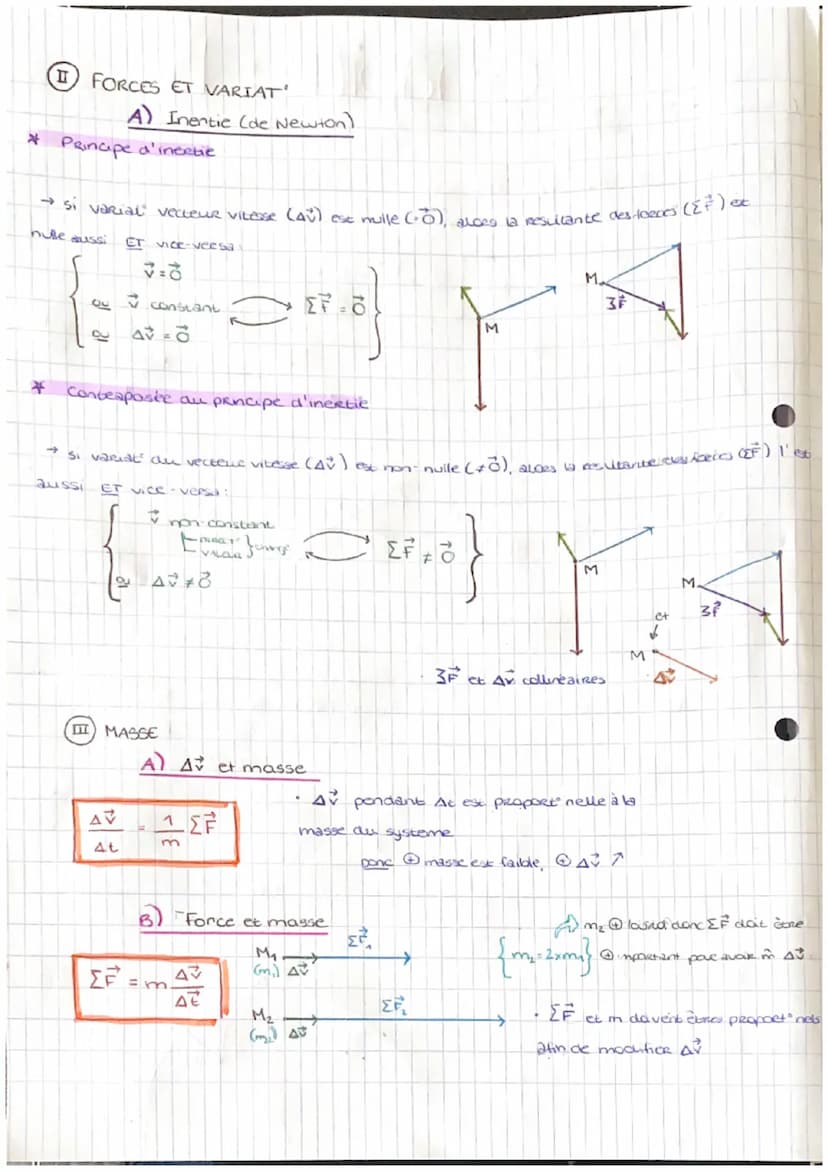 II FORCES ET VARIAT°
A) Inertie (de Newton)
* Principe d'inertie
→ si variat° vecteur vitesse (Δv⃗) est nulle (=0⃗), alors la résultante des forces (ΣF⃗) est
nulle aussi ET vice-versa:
v⃗ = 0⃗
ou v⃗ constant ΣF⃗ = 0⃗
ou Δv⃗ = 0⃗
M
M
3F⃗
* Contraposée au principe d'inertie
→ si variat° du vecteur vitesse (Δv⃗) est non-nulle (≠0⃗), alors la résultante des forces (ΣF⃗) l'est
aussi ET vice-versa:
v⃗ non-constant
ΣF⃗ ≠ 0⃗
ou Δv⃗ ≠ 0⃗
M
M
3F⃗
et
M
Δv⃗
3F⃗ et Δv⃗ collinéaires
III MASSE
A) Δv⃗ et masse
Δv⃗/Δt = 1/m ΣF⃗
• Δv⃗ pendant Δt est proport°nelle à la
masse du système
donc ⊕ masse est faible, ⊕ Δv⃗ ↗
B) Force et masse
ΣF⃗ = m Δv⃗/Δt⃗
M₁ ΣF⃗₁
(m₁) Δv⃗
M₂ ΣF⃗₂
(m₂) Δv⃗
m₂ ⊕ lourd donc ΣF⃗ doit être
{m₂=2×m₁} ⊕ important pour avoir m̂ Δv⃗
• ΣF⃗ et m doivent êtres proport°nels
afin de modifier Δv⃗